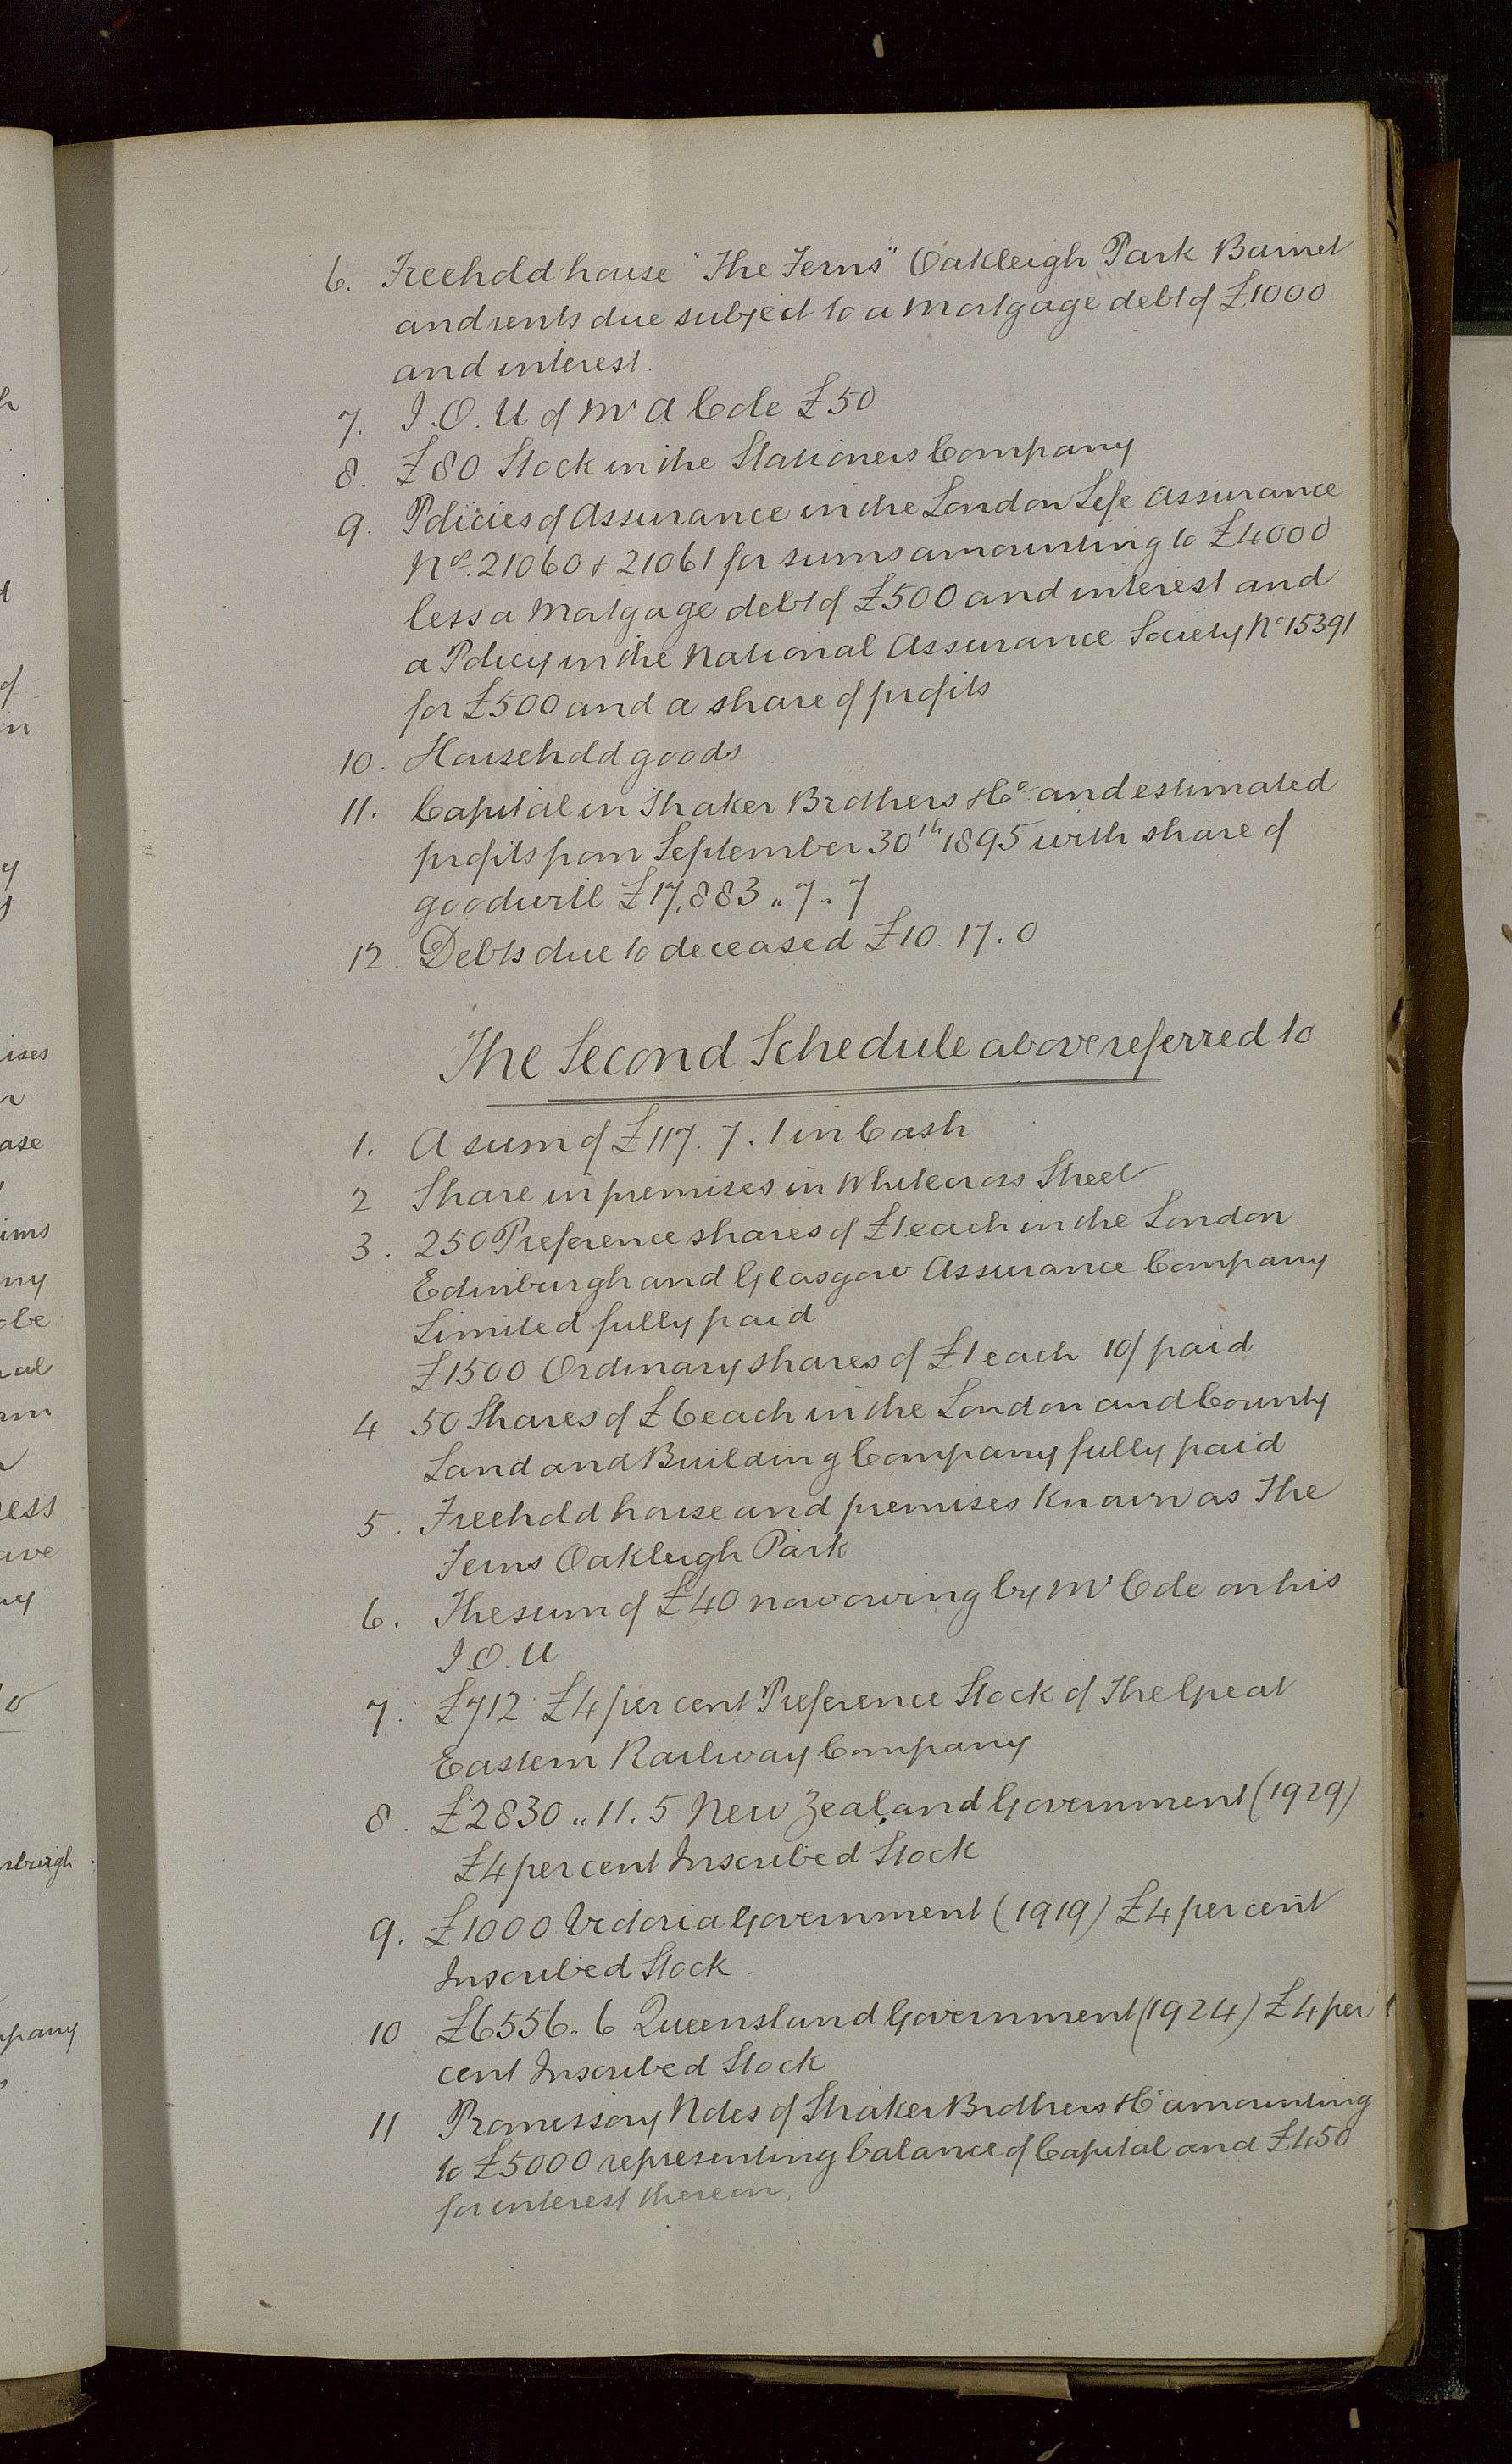 6. Freehold house "The Ferns" Oakleigh Park Barnet
and rents due subject to a Mortgage debt of £1000
and interest.
7. I.O.U of Mr A Cole £50
8. £80 Stock in the Stationers Company
9. Policies of Assurance in the London Life Assurance
Nos. 21060 & 21061 for sums amounting to £4000
less a Mortgage debt of £500 and interest and
a Policy in the National Assurance Society No 15391
for £500 and a share of profits
10. Household goods
11. Capital in Straker Brothers & Co. and estimated
profits from September 30th 1895 with share of
goodwill £17,883 „ 7 „ 7
12. Debts due to deceased £10. 17. 0
The Second Schedule above referred to
1. A sum of £117. 7. 1 in Cash
2 Share in premises in Whitecross Street
3. 250 Preference shares of £1 each in the London
Edinburgh and Glasgow Assurance Company
Limited fully paid
£1500 Ordinary shares of £1 each 10/ paid
4 50 Shares of £6 each in the London and County
Land and Building Company fully paid
5. Freehold house and premises known as The
Ferns Oakleigh Park
6. The sum of £40 now owing by Mr Cole on his
I.O.U
7. £712 £4 per cent Preference Stock of The Great
Eastern Railway Company
8. £2830 „ 11. 5 New Zealand Government (1929)
£4 per cent Inscribed Stock
9. £1000 Victoria Government (1919) £4 per cent
Inscribed Stock.
10 £6556 „ 6 Queensland Government (1924) £4 per
cent Inscribed Stock
11 Promissory Notes of Straker Brothers & Co amounting
to £5000 representing balance of Capital and £450
for interest thereon.